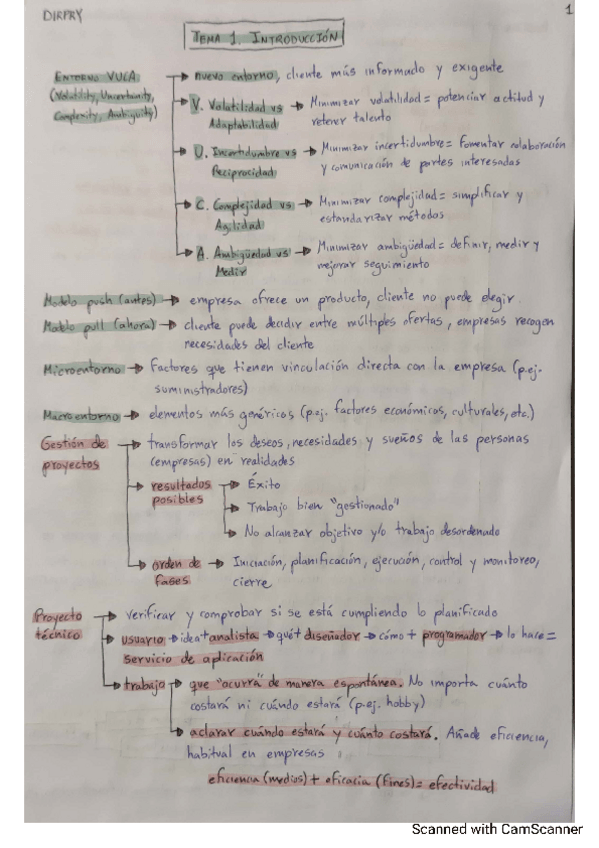 DIRPRY
1
TEMA 1. INTRODUCCIÓN
ENTORNO VUCA → nuevo entorno, cliente más informado y exigente
(Volatility, Uncertainty,
Complexity, Ambiguity)
V. Volatilidad vs → Minimizar volatilidad = potenciar actitud y
Adaptabilidad retener talento
U. Incertidumbre vs → Minimizar incertidumbre = fomentar colaboración
Reciprocidad y comunicación de partes interesadas
C. Complejidad vs → Minimizar complejidad = simplificar y
Agilidad estandarizar métodos
A. Ambigüedad vs → Minimizar ambigüedad = definir, medir y
Medir mejorar seguimiento
Modelo push (antes) → empresa ofrece un producto, cliente no puede elegir
Modelo pull (ahora) → cliente puede decidir entre múltiples ofertas, empresas recogen
necesidades del cliente
Microentorno → Factores que tienen vinculación directa con la empresa (p.ej.
suministradores)
Macroentorno → elementos más genéricos (p.ej. factores económicos, culturales, etc.)
Gestión de → transformar los deseos, necesidades y sueños de las personas
proyectos (empresas) en realidades
resultados → Éxito
posibles → Trabajo bien "gestionado"
→ No alcanzar objetivo y/o trabajo desordenado
orden de → Iniciación, planificación, ejecución, control y monitoreo,
fases cierre
Proyecto → verificar y comprobar si se está cumpliendo lo planificado
técnico → usuario → idea + analista → qué + diseñador → cómo + programador → lo hace =
servicio de aplicación
→ trabajo → que "ocurra" de manera espontánea. No importa cuánto
costará ni cuándo estará (p.ej. hobby)
→ aclarar cuándo estará y cuánto costará. Añade eficiencia,
habitual en empresas
eficiencia (medios) + eficacia (fines) = efectividad
Scanned with CamScanner